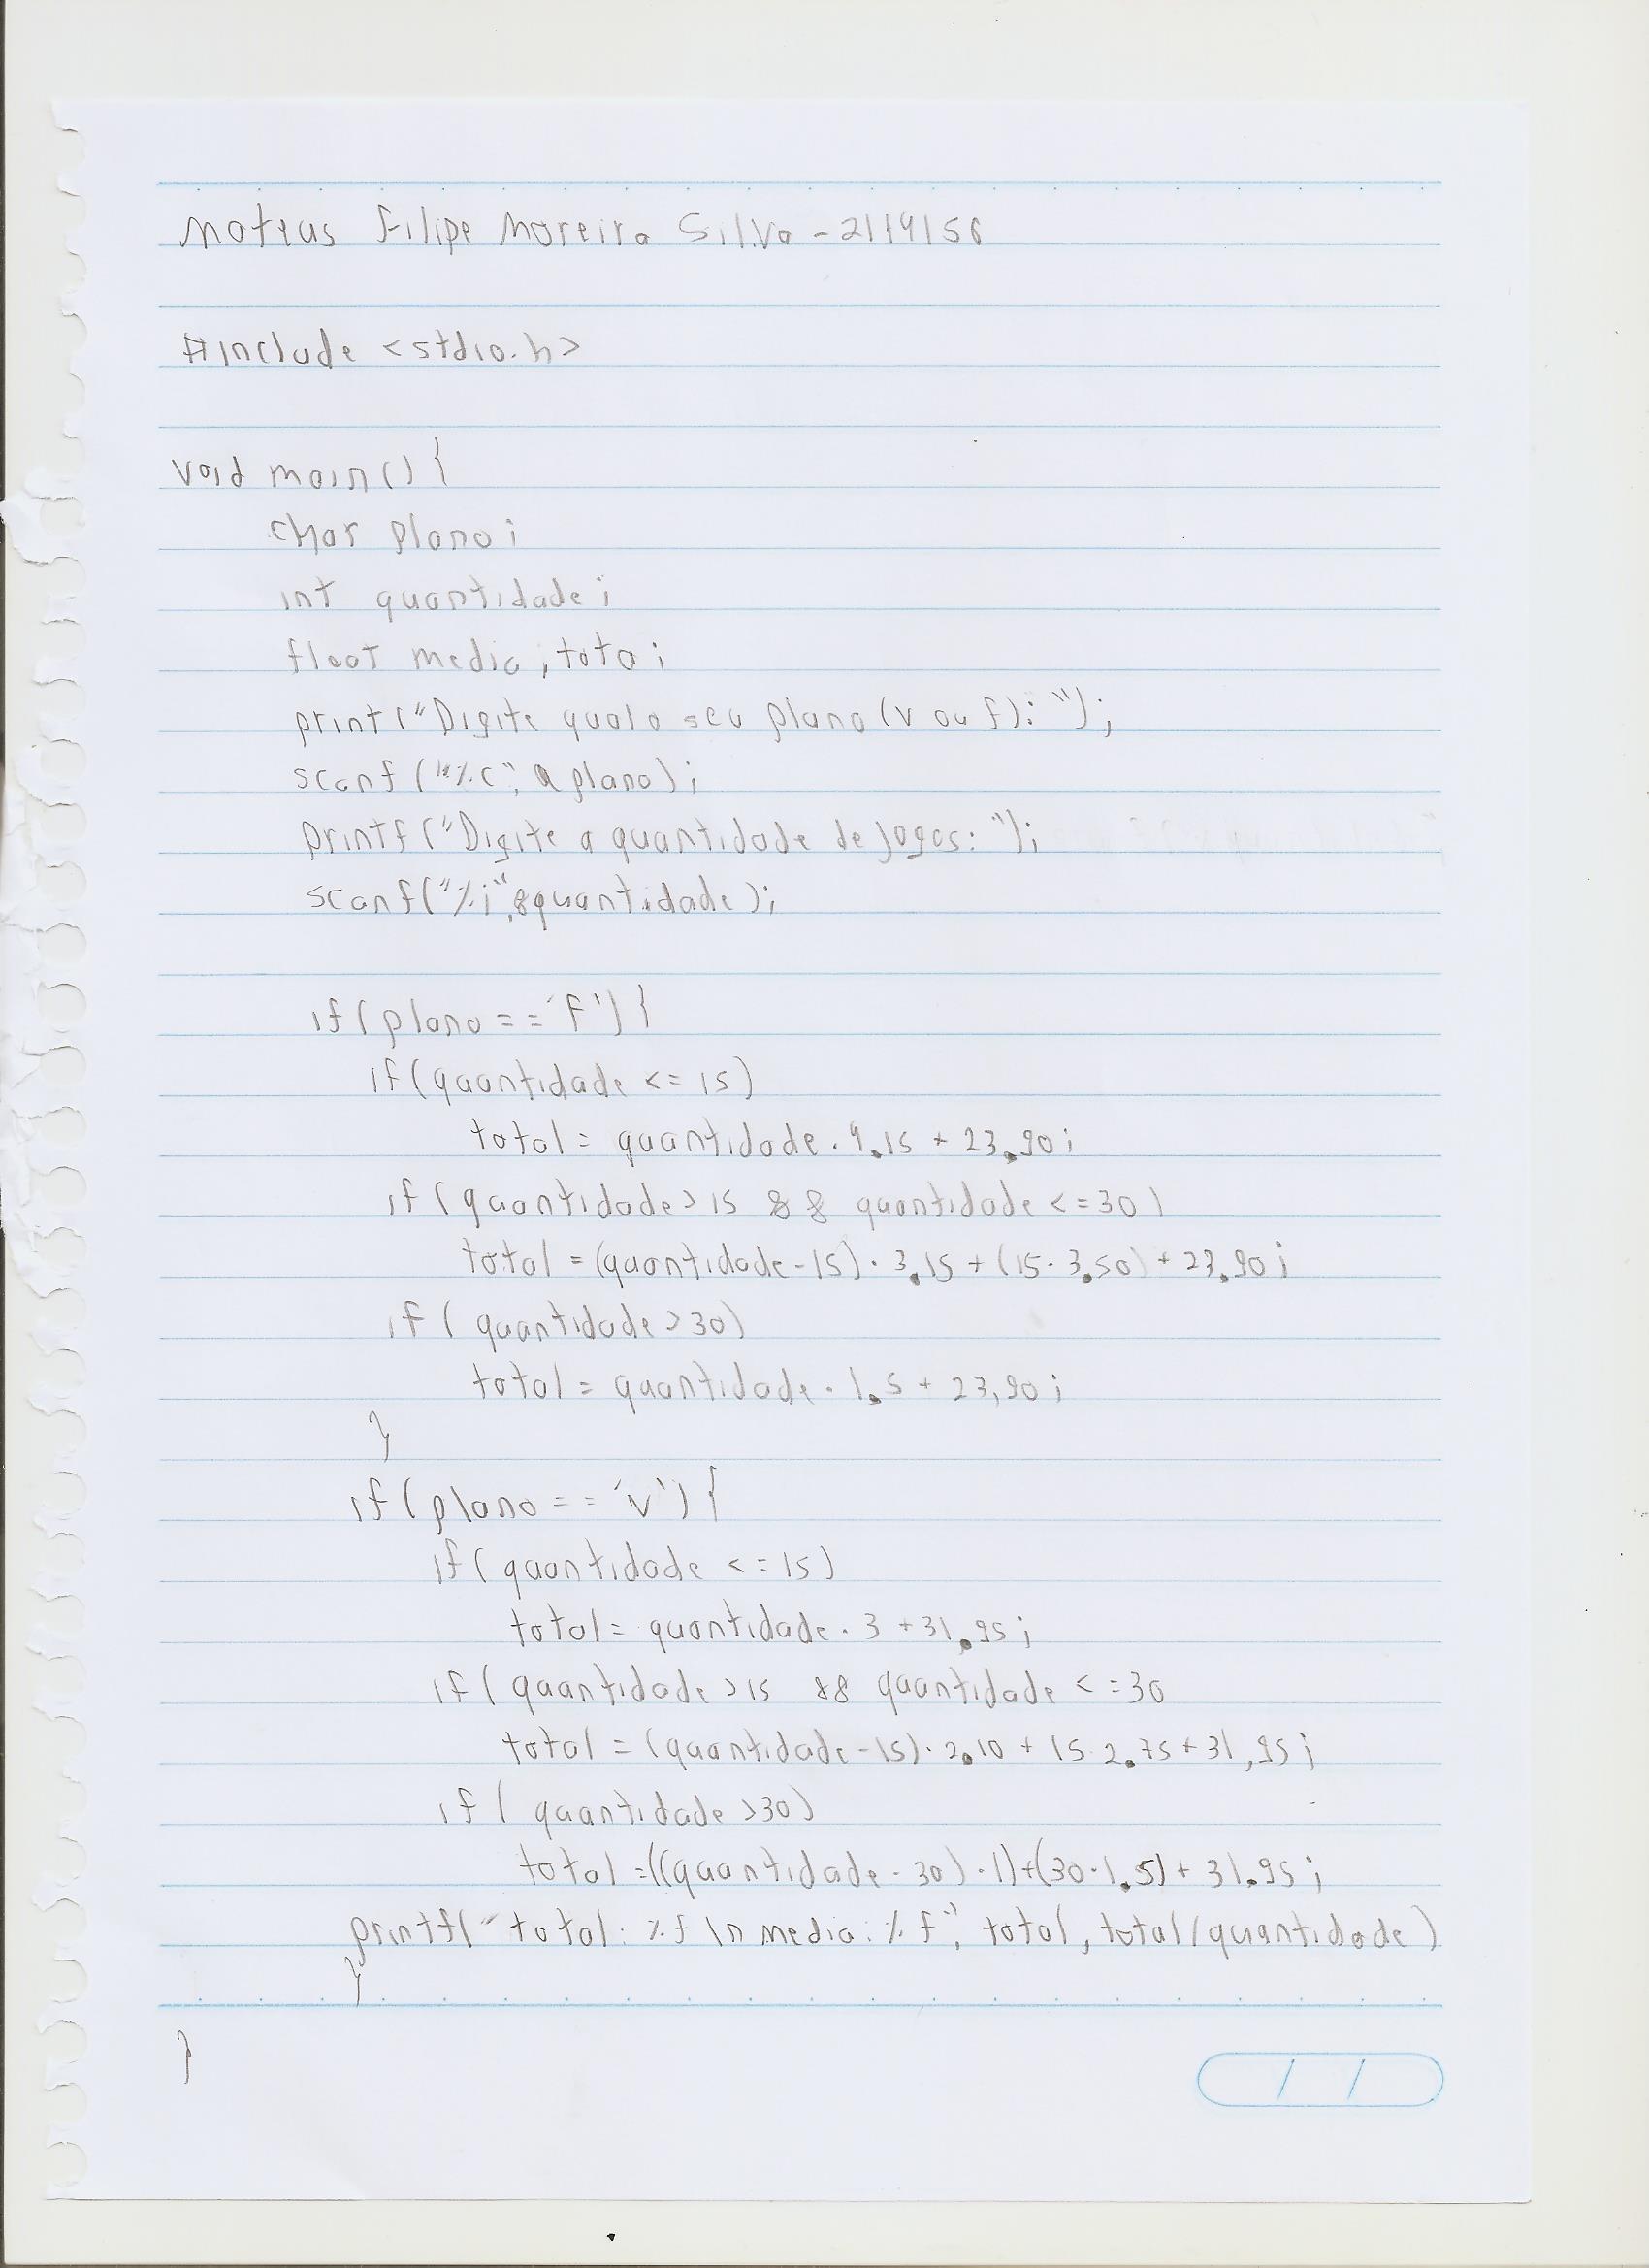 Mateus Filipe Moreira Silva - 2119156
#include <stdio.h>
void main(){
char plano;
int quantidade;
float media, tota;
print("Digite qual o seu plano (v ou f): ");
scanf("%c", &plano);
printf("Digite a quantidade de jogos: ");
scanf("%i",&quantidade);
if(plano == 'F'){
if(quantidade <= 15)
total = quantidade . 4.15 + 23.90;
if(quantidade > 15 && quantidade <= 30)
total = (quantidade - 15) . 3.15 + (15 . 3.50) + 23.90;
if( quantidade > 30)
total = quantidade . 1.5 + 23,90;
}
if(plano == 'v'){
if(quantidade <= 15)
total = quantidade . 3 + 31.95;
if(quantidade > 15 && quantidade <= 30
total = (quantidade - 15) . 2.10 + 15 . 2.75 + 31,95;
if( quantidade > 30)
total = ((quantidade - 30) . 1) + (30 . 1.5) + 31.95;
printf(" total: %f \n media: %f", total, total/quantidade)
}
}